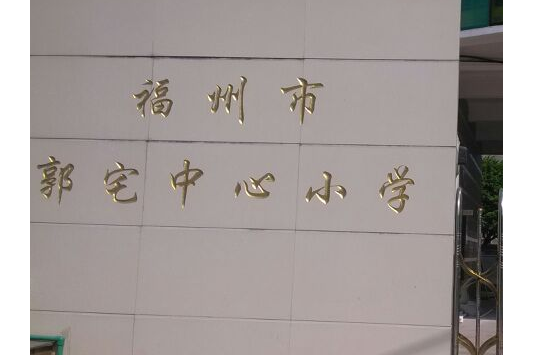 福州市
郭宅中心小学